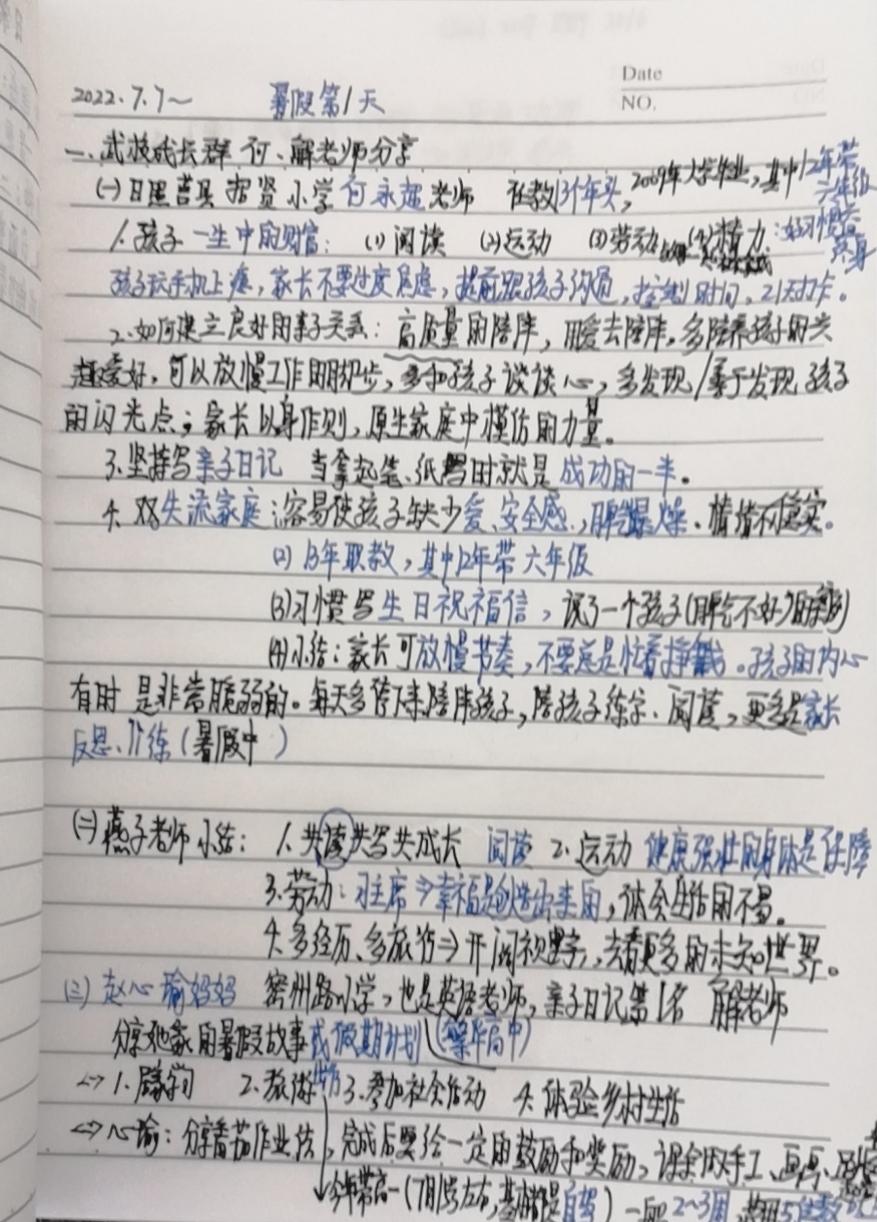 Date
NO.
2022.7.7～ 暑假第1天
一、武汶成长群 何、解老师分享
(一)日照莒县招贤小学何永超老师 任教13个年头，2009年大学毕业，其中12年带六年级
1.孩子一生中的财富：(1)阅读 (2)运动 (3)劳动 (4)精力：好习惯益终身
孩子玩手机上瘾，家长不要过度焦虑，提前跟孩子沟通，控制时间，21天打卡。
2.如何建立良好的亲子关系：高质量的陪伴，用爱去陪伴，多陪养孩子的兴
趣爱好，可以放慢工作的脚步，多和孩子谈谈心，多发现/善于发现孩子
的闪光点；家长以身作则，原生家庭中模仿的力量。
3.坚持写亲子日记 当拿起笔、纸写时就是成功的一半。
4.双失流家庭：容易使孩子缺少爱、安全感，脾气暴燥、情绪不稳定。
(2)13年职教，其中12年带六年级
(3)习惯写生日祝福信，说了一个孩子(脾气不好)的案例
(4)小结：家长可放慢节奏，不要总是忙着挣钱。孩子的内心
有时是非常脆弱的。每天多停下来陪伴孩子，陪孩子练字、阅读，更多是家长
反思、训练(暑假中)
(二)燕子老师小结：1.共读共写共成长 阅读 2.运动 健康强壮的身体是保障
3.劳动：习主席→幸福是创造出来的，体会生活的不易。
4.多经历、多旅行⇒开阔视野，去看更多的未知世界。
(三)赵心瑜妈妈 密州路小学，也是英语老师，亲子日记第1名 解老师
分享她家的暑假故事或假期计划
1. 2.旅游 3.参加社会活动 4.体验乡村生活
心瑜：分享番茄作业法，完成后要给一定的鼓励和奖励，课余时手工、画画、
今年带高一(7月1号左右，自驾) 2～3周